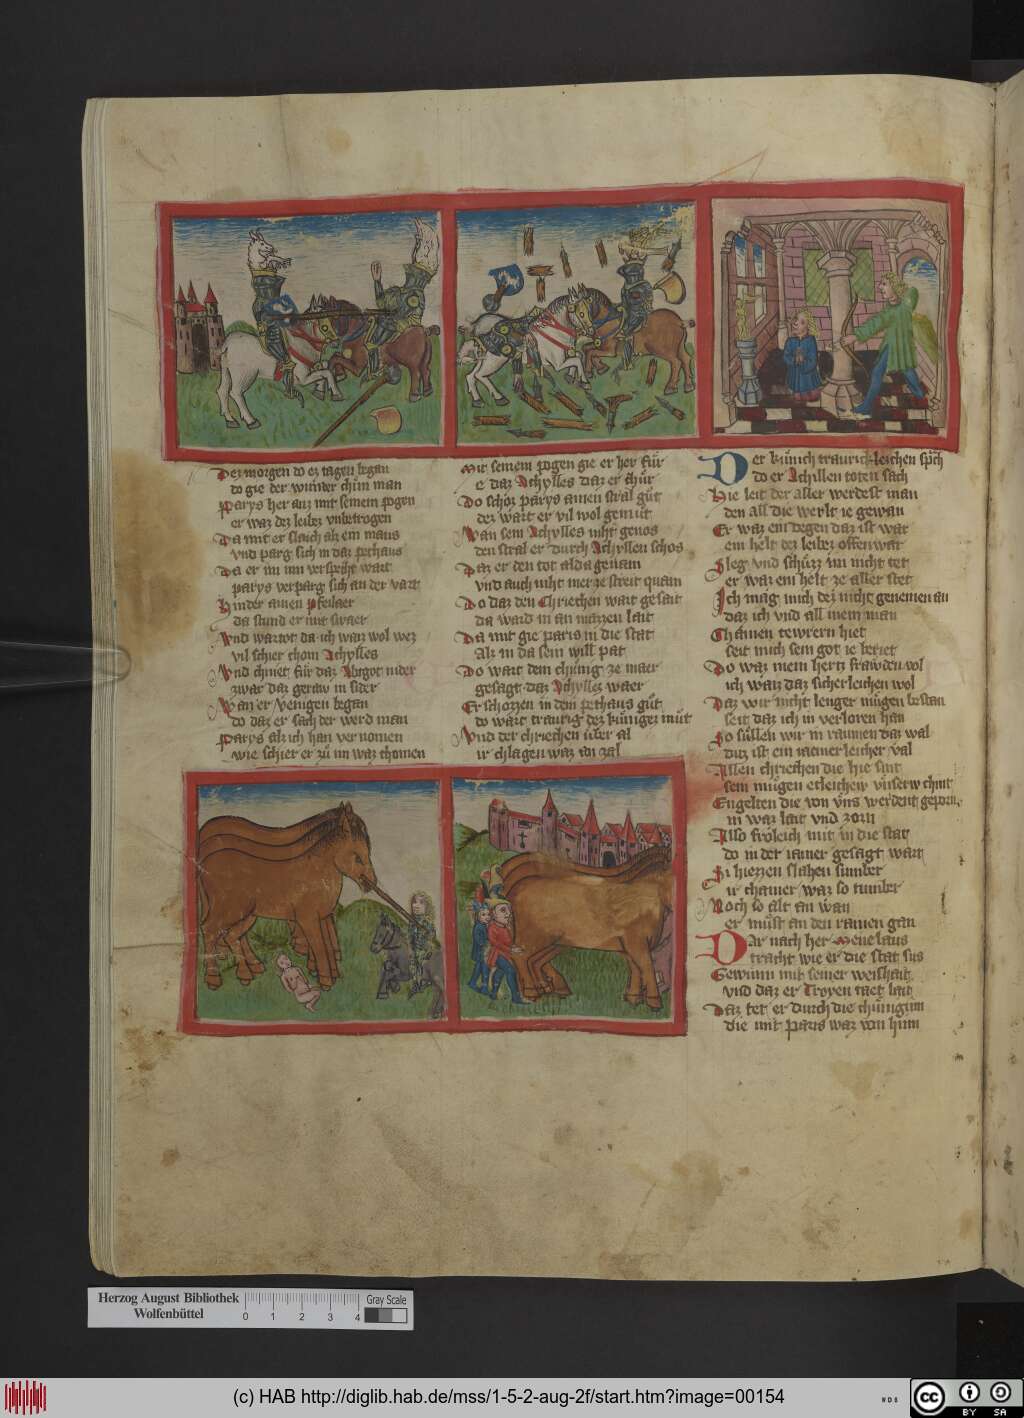 Dez morgen do ez tagen began
do gie der wunder chun man
Parys her auz mit seinem pogen
er waz dez leibez vnbetrogen
Da mit er slaich als ein maus
vnd parg sich in daz pethaus
Da er im inn verspeht wart
parys verparg sich an der vart
Hinder ainen pfeilaer
da stund er mit swaer
Vnd wartot da ich wan wol wez
vil schier chom Achylles
Vnd chniet für daz Abtgot nider
zwar daz geraw in sider
Wan er venigen began
do daz er sach der werd man
Parys alz ich han vernomen
wie schier er zü im waz chomen
Mit seinem pogen gie er her für
e daz Achylles daz er chür
Do schoz parys ainen stral güt
dez wart er vil wol gemüt
Wan sein Achylles niht genos
den stral er durch Achyllen schos
Daz er den tot alda genam
vnd auch niht mer ze streit quam
Do daz den Chriechen wart gesait
da ward in an mazzen lait
Da mit gie paris in die stat
Alz in da sein will pat
Do wart dem chünig ze maer
gesagt daz Achyllez waer
Erschozzen in dem pethaus güt
do wart traurig dez küniges müt
Vnd der chriechen über al
ir chlagen waz on zal
Der künich traurichleichen sprch
do er Achillen toten sach
Hie leit der aller werdest man
den all die werlt ie gewan
Er waz ein degen daz ist war
ein helt dez leibez offenwar
Sleg vnd schüzz im nicht tet
er waz ein helt ze aller stet
Ich mag mich dez nicht genemen an
daz ich vnd all mein man
Chamen tewrern hiet
seit mich sein got ie beriet
Do waz mein hertz frawden vol
ich waiz daz sicherleichen wol
Daz wir nicht lenger mügen bestan
seit daz ich in verloren han
So süllen wir in raumen daz wal
diz ist ein iaemerleicher val
Allen chriechen die hie sint
sein mügen etleichew vnserw chint
Engelten die von vns werdent geporn
in waz lait vnd zorn
Also fröleich mit in die stat
do in der iamer gesagt wart
Si hiezzen slahen sumber
ir chainer waz so tumber
Noch so alt an wan
er müst an den raien gan
Dar nach her Menelaus
tracht wie er die stat sus
Gewünn mit seiner weishait
vnd daz er Troyen taet lait
Daz tet er durch die chünigin
die mit Paris waz von hinn
Herzog August Bibliothek
Wolfenbüttel
0 1 2 3 4
Gray Scale
(c) HAB http://diglib.hab.de/mss/1-5-2-aug-2f/start.htm?image=00154
WDB
cc
BY SA